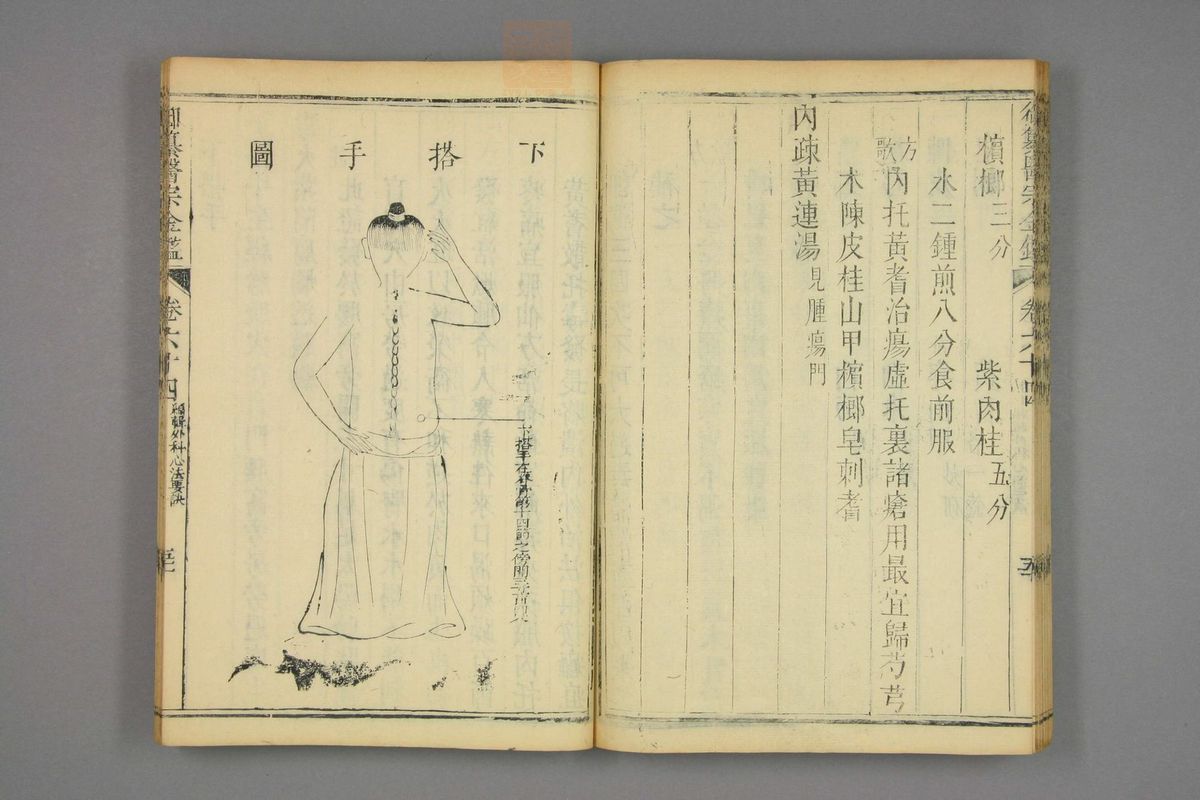 檳榔三分 紫肉桂五分
水二鍾煎八分食前服
方歌 內托黃耆治瘍虛托裏諸瘡用最宜歸芍芎
木陳皮桂山甲檳榔皂刺耆
內疎黃連湯見腫瘍門
下搭手圖
下搭手在脊骨第十四節之傍開三寸
御纂醫宗金鑑
卷六十四
編輯外科心法要訣